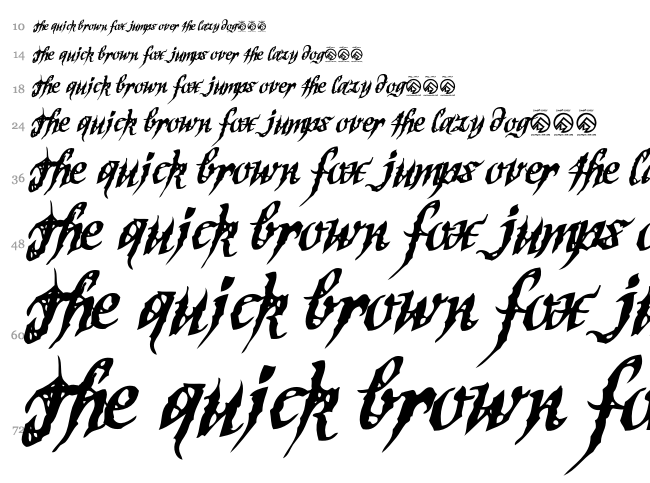 10 The quick brown fox jumps over the lazy dog
14 The quick brown fox jumps over the lazy dog
18 The quick brown fox jumps over the lazy dog
24 The quick brown fox jumps over the lazy dog
36 The quick brown fox jumps over the la
48 The quick brown fox jumps o
60 The quick brown fox ju
72 The quick brown fo